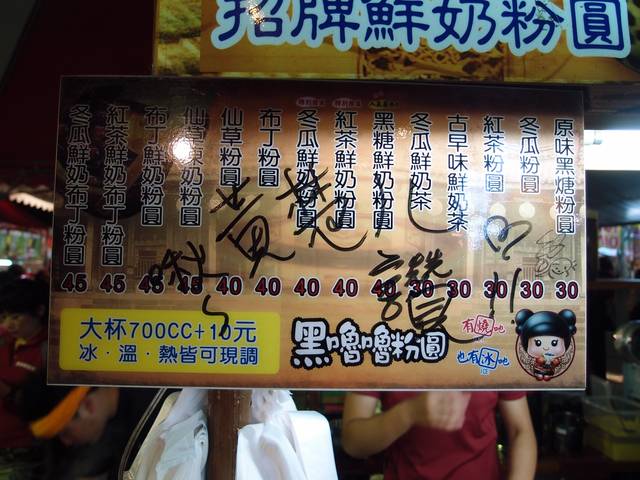 招牌鮮奶粉圓
原味黑糖粉圓 30
冬瓜粉圓 30
紅茶粉圓 30
古早味鮮奶茶 30
冬瓜鮮奶茶 30
黑糖鮮奶粉圓 40
紅茶鮮奶粉圓 40
冬瓜鮮奶粉圓 40
布丁粉圓 40
仙草粉圓 40
仙草鮮奶粉圓 45
布丁鮮奶粉圓 45
紅茶鮮奶布丁粉圓 45
冬瓜鮮奶布丁粉圓 45
讚!!
大杯700CC+10元
冰·溫·熱皆可現調
黑嚕嚕粉圓
有燒吔
也有冰吔